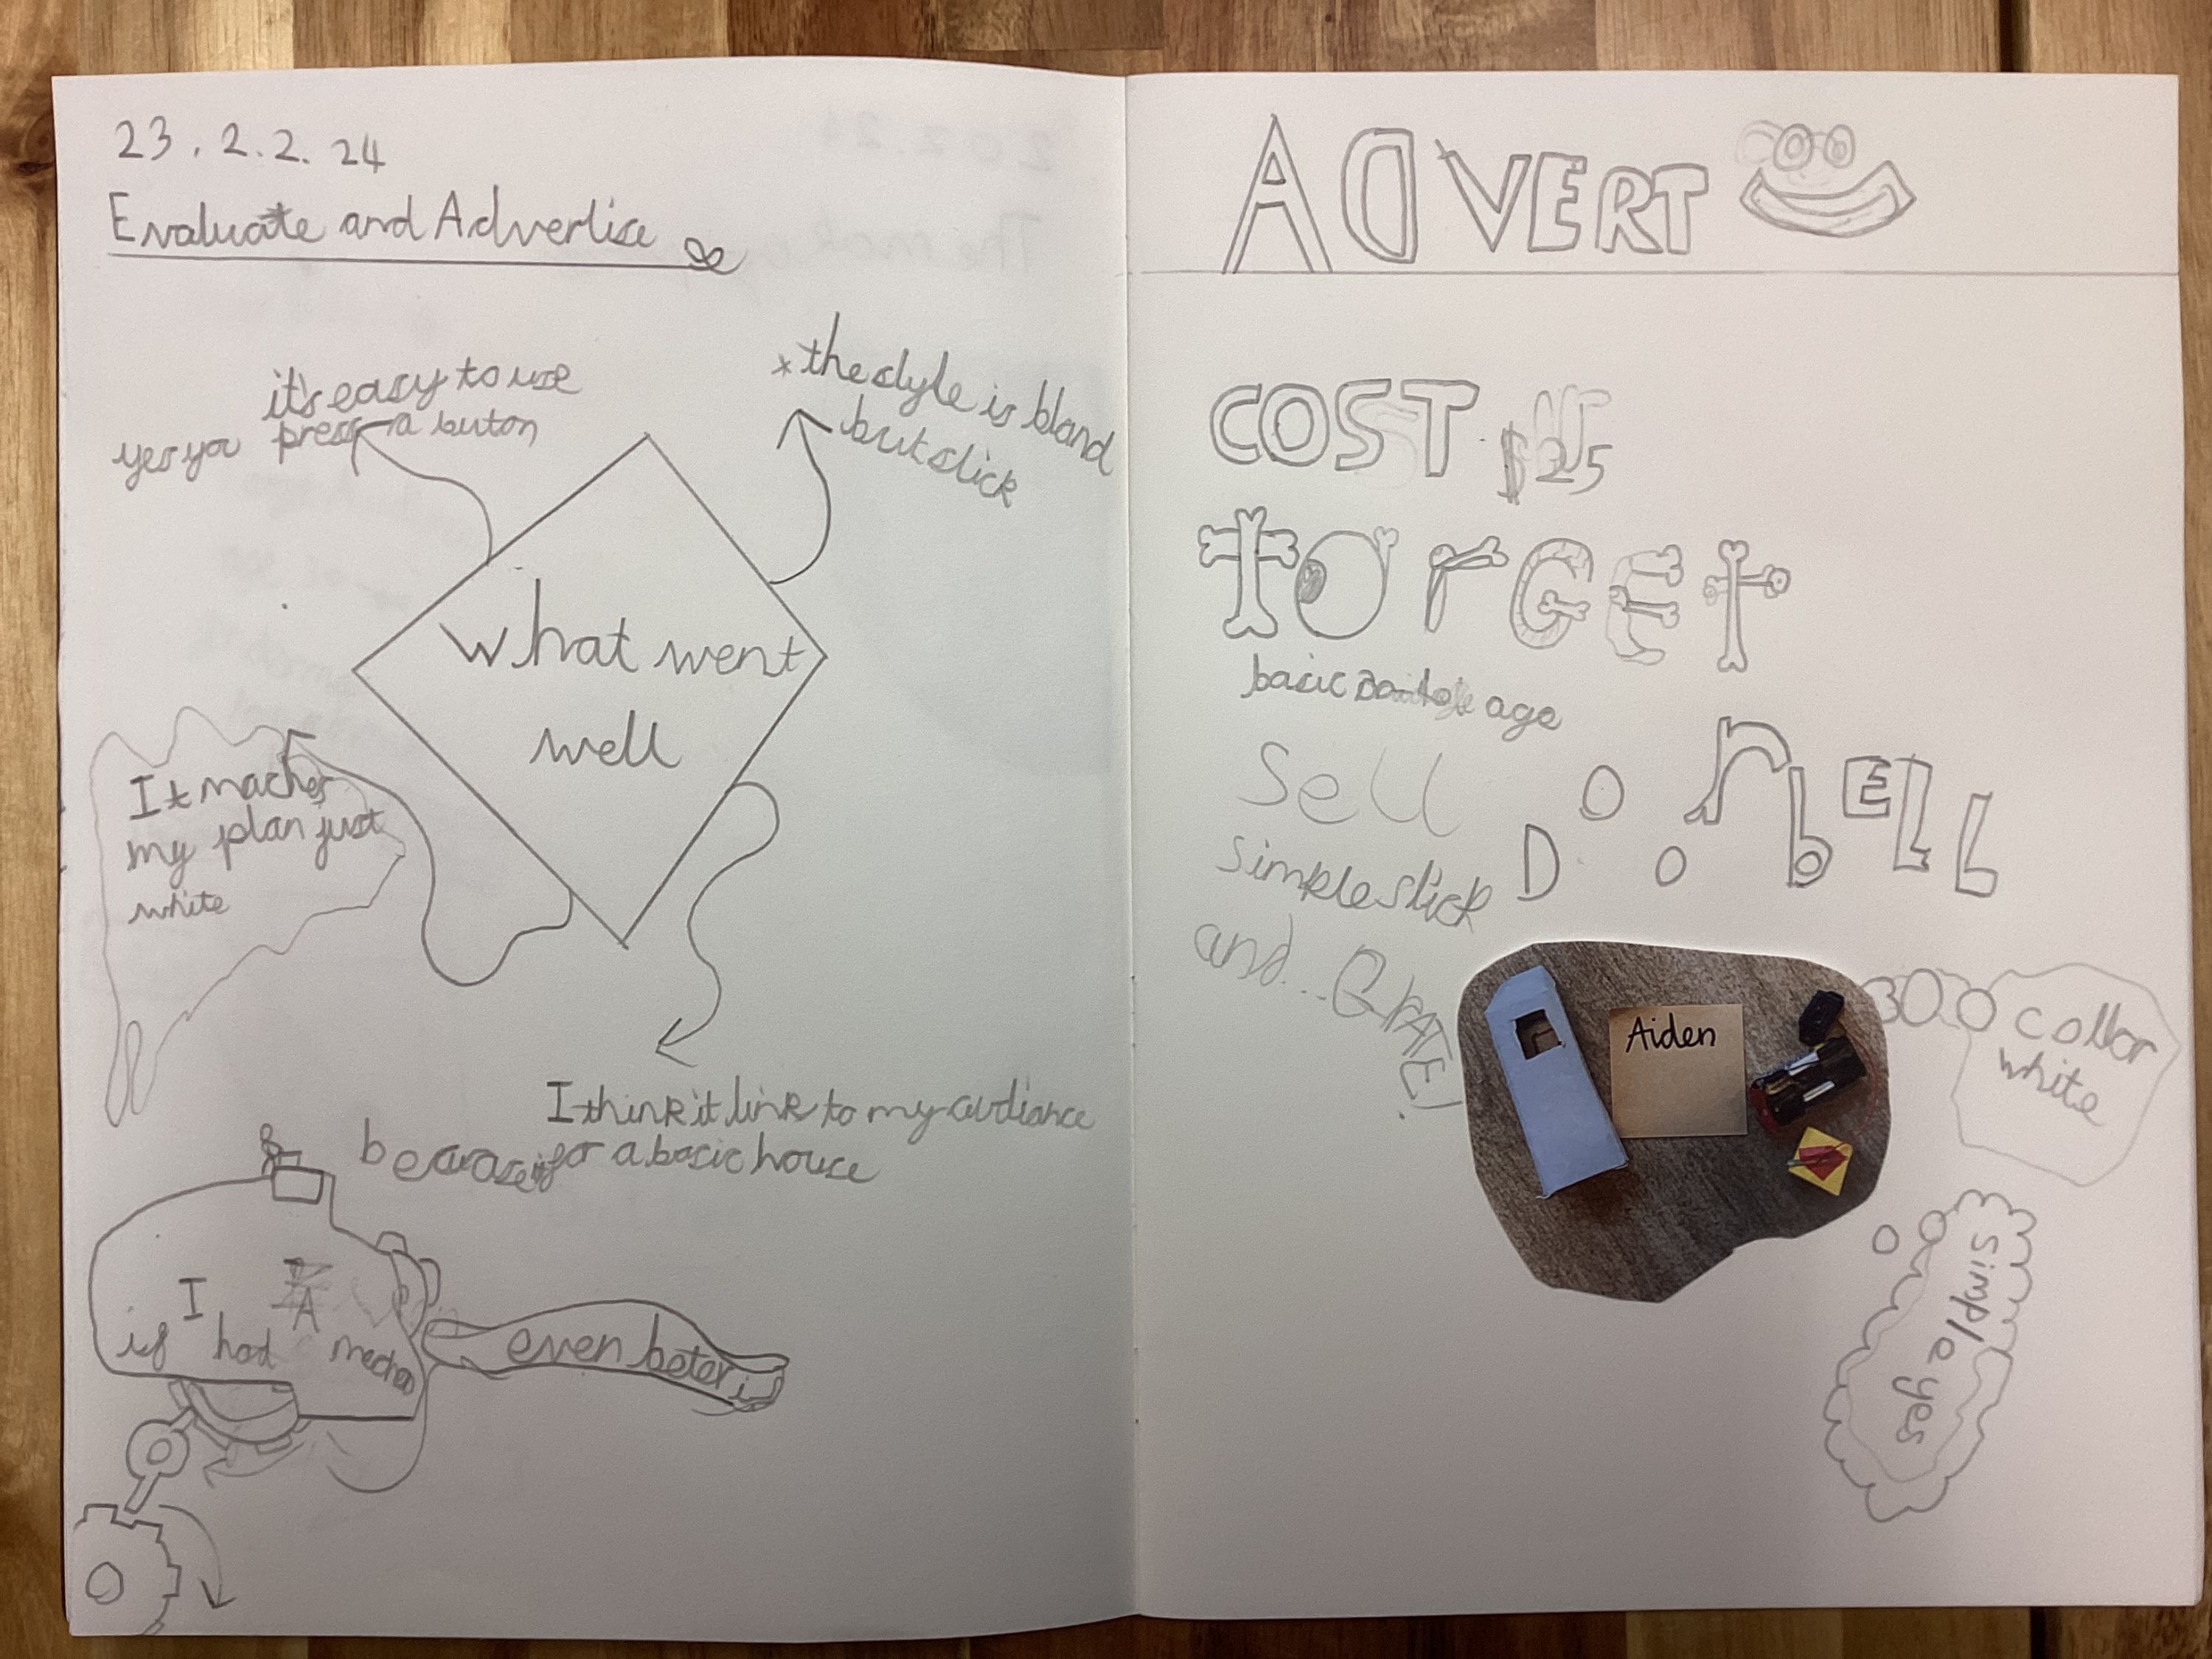 23.2.2.24
Evaluate and Advertise
it's easy to use
yes you press a buton
*the style is bland
but slick
What went
well
It maches
my plan just
white
I think it link to my audiance
becarase for a basic house
if I had A mechan
even beter if
ADVERT
COST $25
tarGEt
basic age
Sell
DoorbELL
simple slick
and... GrATE!
Aiden
collor
white
simple yes